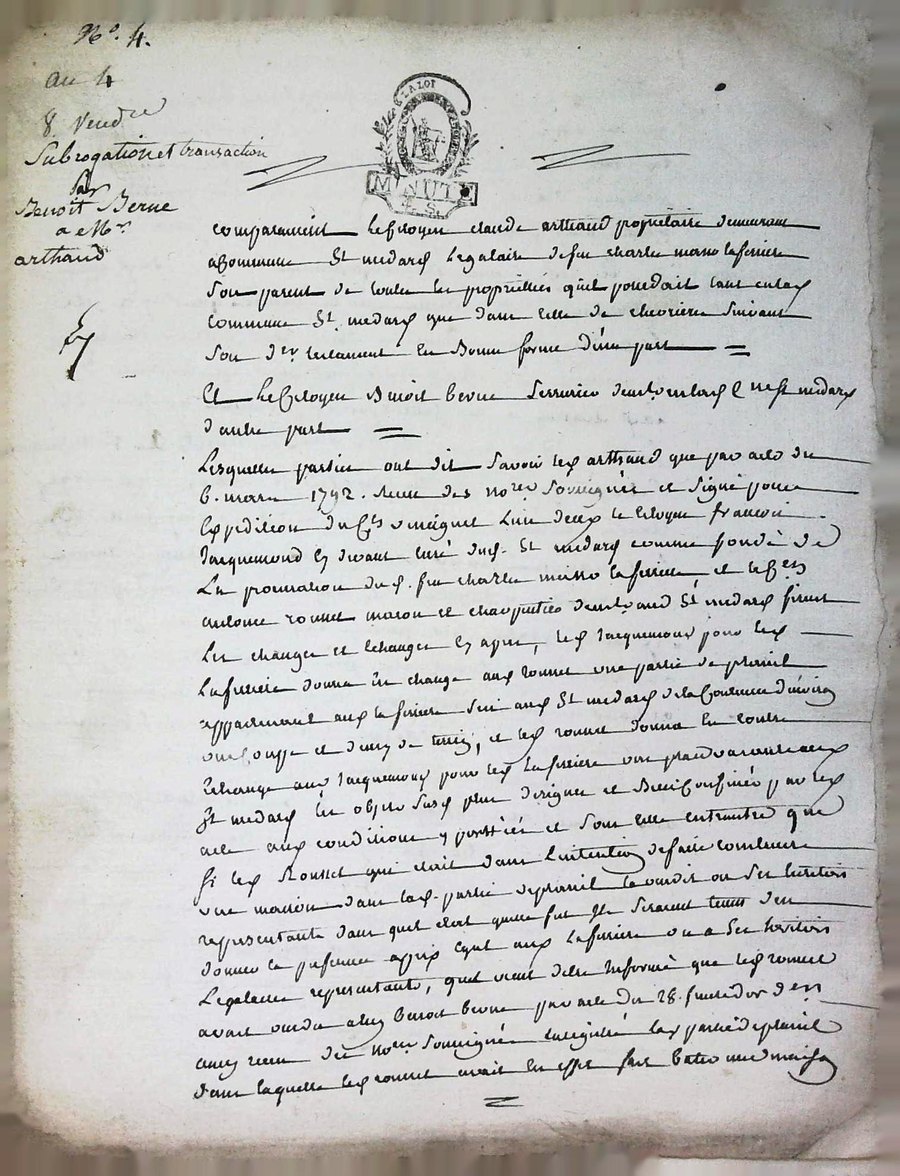 No. 4.
au 4
8 Vendre
Subrogation et transaction
par
Benoit Berne
a Mr
arthaud
LA LOI
MINUTE
4. S.
comparaissent le Citoyen claude arthaud propriétaire demeurant
a commune St medard Legataire de feu charle masso laferriere
son parent de toutes les propriettés quil possedait tant en lad
commune St. medard que dans celle de chevriere suivant
son der testament en Bonne forme d'une part
Et Le Citoyen Benoit berne Serrurier demt en lad Cne St medard
d'autre part
Lesquelles parties ont dit savoir led arthaud que par acte du
6. mars 1792. recu des nores soussignés et signé pour
Expédition du Cit l'un d'eux le Citoyen francois
Jacquemond cy devant curé dud. St medard comme fondé de
La procuration dud. feu charle masso laferriere et le Cen
antoine ronnet macon et charpentier demt aud St medard firent
Les changes et échanges cy apres, led Jacquemond pour led
Laferriere donna En change aud ronnet une partie de
appartenant aud laferriere sise aud St medard de la Contenue d'environ
une coupe et demy de , et led ronnet donna En contre
Echange aud Jacquemond pour led Laferriere une
St medard les objets susd plus designés et Bien Confinés par led
acte aux conditions y portées et sous celle entrautre que
si led Ronnet qui etait dans L'intention de faire construire
une maison dans lad. partie de la vendit ou ses heritiers
representants dans quel etat quelle fut Il seraient tenus d'en
donner la preference a prix egal aud Laferriere ou a ses heritiers
Legataires representants, quil vient detre Informé que led ronnet
avait vendu aud Benoit berne par acte du 28. fructidor der
recu des nores soussignés enregistré lad partie de
dans laquelle led ronnet avait En effet fait batir une maison